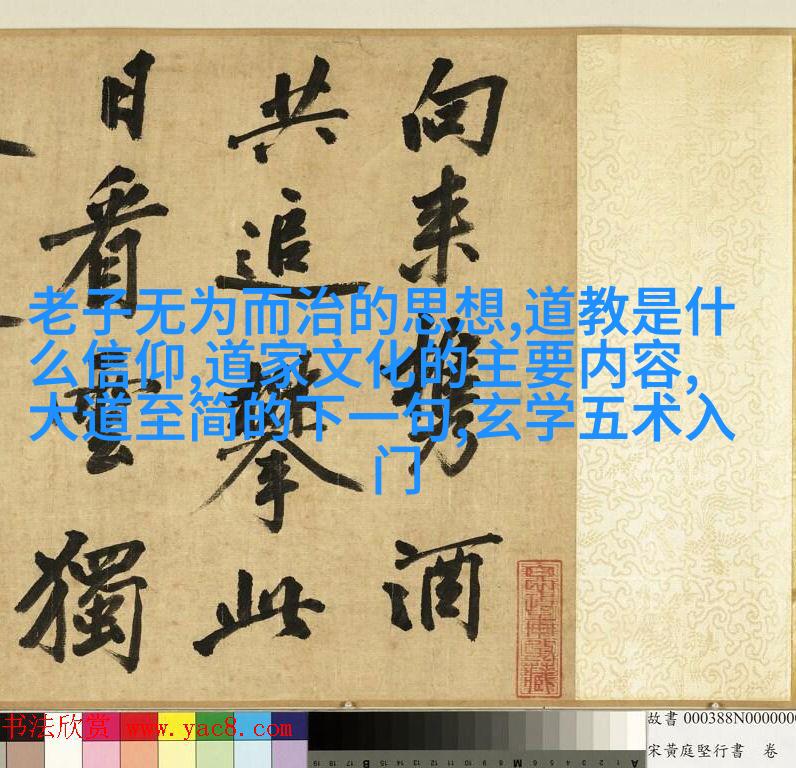 向来携酒
共追攀此
日看雲獨
老子无为而治的思想,道教是什
么信仰,道家文化的主要内容,
大道至简的下一句,玄学五术入
门
书法欣赏 www.yac8.com
故書 000388N0000000
宋黃庭堅行書 卷